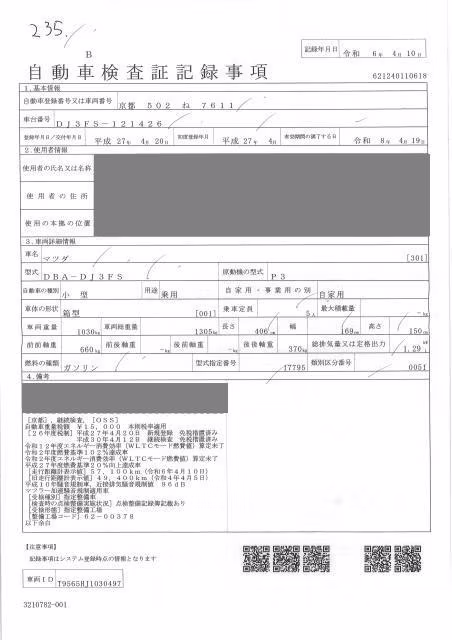 235.
B
記録年月日 令和 6年 4月 10日
自動車検査証記録事項
621240110618
1.基本情報
自動車登録番号又は車両番号 京都 502 ね 7611
車台番号 DJ3FS-121426
登録年月日/交付年月日 平成 27年 4月 20日 初度登録年月 平成 27年 4月 有効期間の満了する日 令和 8年 4月 19日
2.使用者情報
使用者の氏名又は名称
使用者の住所
使用の本拠の位置
3.車両詳細情報
車名 マツダ [301]
型式 DBA-DJ3FS 原動機の型式 P3
自動車の種別 小型 用途 乗用 自家用・事業用の別 自家用
車体の形状 箱型 [001] 乗車定員 5人 最大積載量 -kg
車両重量 1030kg 車両総重量 1305kg 長さ 406cm 幅 169cm 高さ 150cm
前前軸重 660kg 前後軸重 -kg 後前軸重 -kg 後後軸重 370kg 総排気量又は定格出力 1.29
燃料の種類 ガソリン 型式指定番号 17795 類別区分番号 0051
4.備考
[京都],継続検査,[OSS]
自動車重量税額 ¥15,000 本則税率適用
[26年度税制]平成27年4月20日 新規登録 免税措置済み
平成30年4月12日 継続検査 免税措置済み
令和12年度エネルギー消費効率(WLTCモード燃費値)算定未了
令和2年度燃費基準102%達成車
令和2年度エネルギー消費効率(WLTCモード燃費値)算定未了
平成27年度燃費基準20%向上達成車
[走行距離計表示値]57,100km(令和6年4月10日)
[旧走行距離計表示値]49,400km(令和4年4月5日)
平成10年騒音規制車,近接排気騒音規制値 96dB
マフラー加速騒音規制適用車
[受検種別]指定整備車
[検査時の点検整備実施状況]点検整備記録簿記載あり
[受検形態]指定整備工場
[整備工場コード]62-00378
以下余白
【注意事項】
記録事項はシステム登録時点の情報となります
車両ID T9565HJ1030497
3210782-001